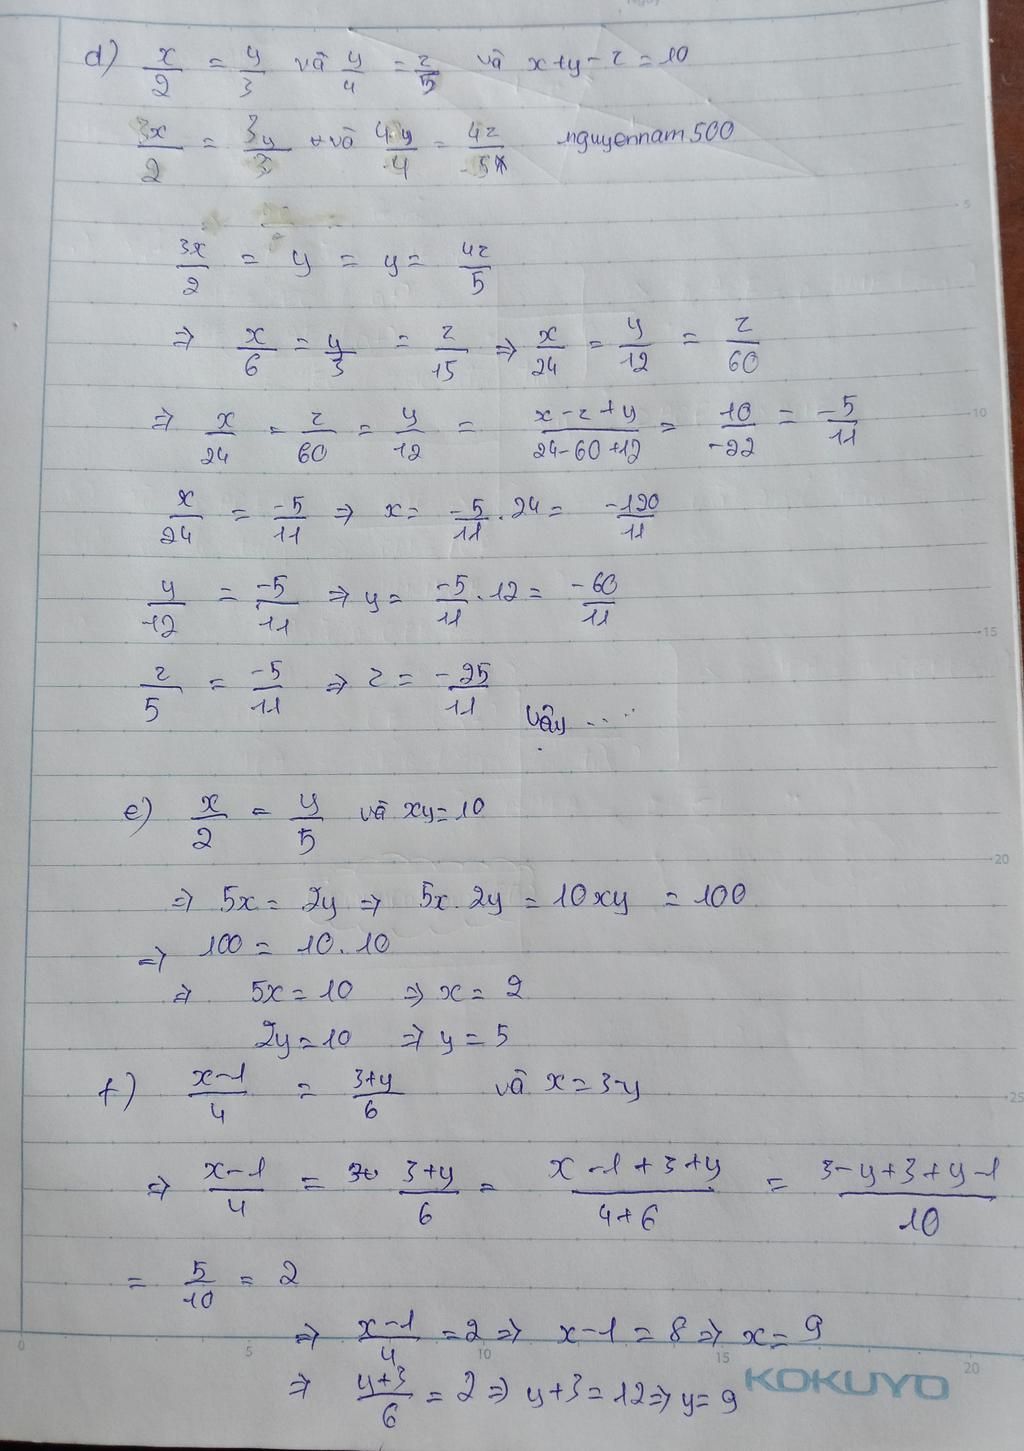 d) x/2 = y/3 và y/4 = z/5 và x+y-z=10
3x/2 = 3y/3 và 4y/4 = 4z/5 nguyennam500
3x/2 = y = y = 4z/5
⇒ x/6 = y/3 = z/15 ⇒ x/24 = y/12 = z/60
⇒ x/24 = z/60 = y/12 = (x-z+y)/(24-60+12) = 10/-22 = -5/11
x/24 = -5/11 ⇒ x = -5/11 . 24 = -120/11
y/12 = -5/11 ⇒ y = -5/11 . 12 = -60/11
z/5 = -5/11 ⇒ z = -25/11
Vậy ....
e) x/2 = y/5 và xy=10
⇒ 5x = 2y ⇒ 5x.2y = 10xy = 100
⇒ 100 = 10.10
⇒ 5x = 10 ⇒ x = 2
2y = 10 ⇒ y = 5
f) (x-1)/4 = (3+y)/6 và x=3-y
⇒ (x-1)/4 = (3+y)/6 = (x-1+3+y)/(4+6) = (3-y+3+y-1)/10
= 5/10 = 2
⇒ (x-1)/4 = 2 ⇒ x-1 = 8 ⇒ x = 9
⇒ (y+3)/6 = 2 ⇒ y+3 = 12 ⇒ y = 9
KOKUYO